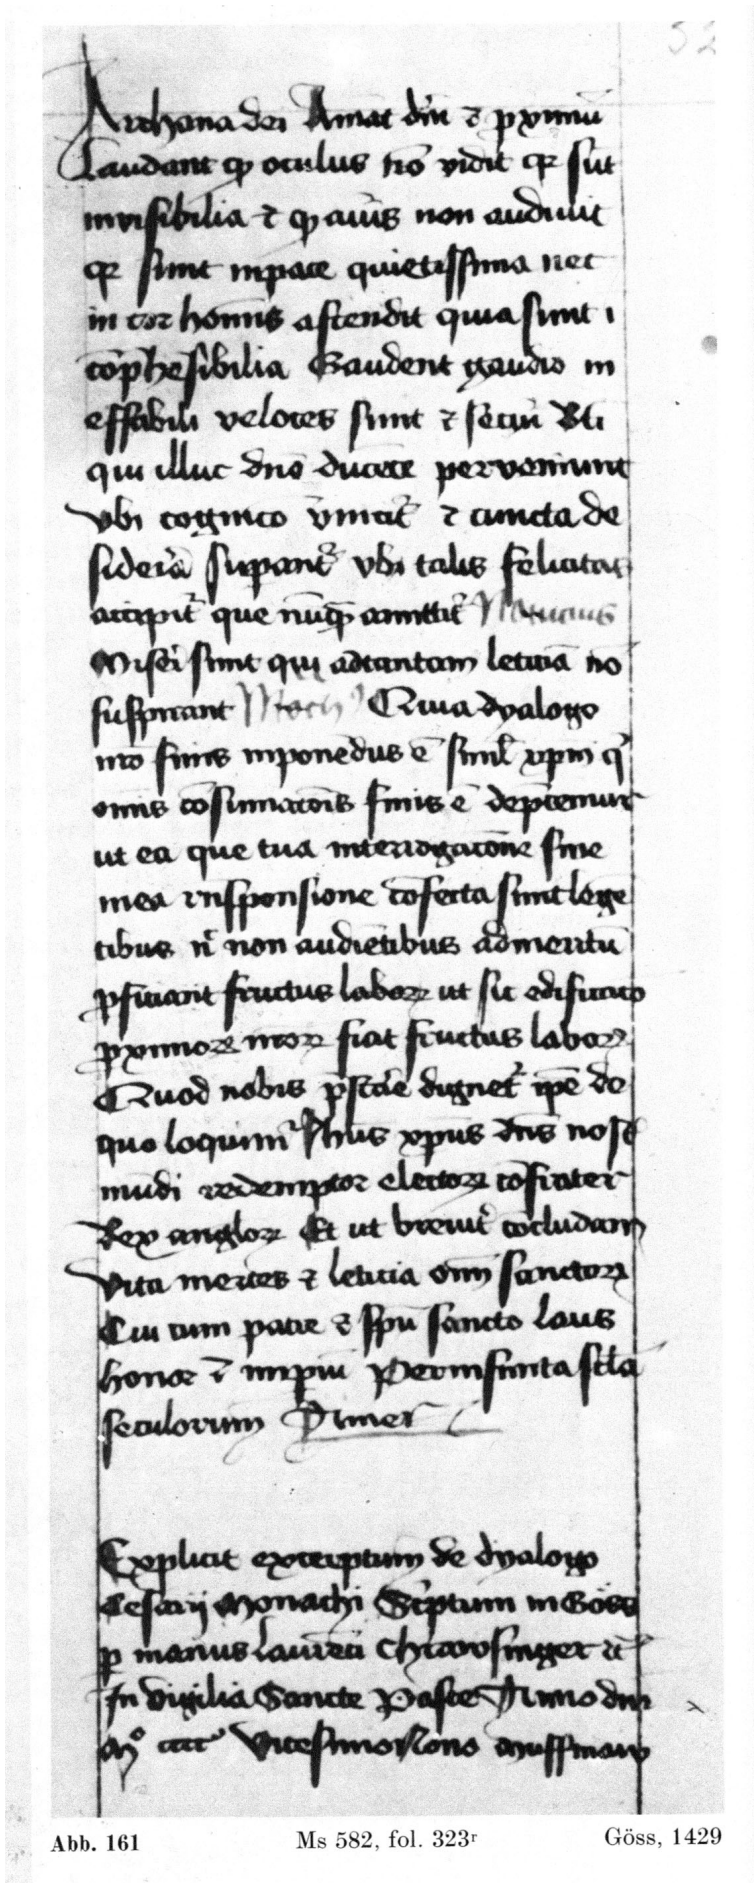 52
Archana dei Amāt dm̄ ⁊ pximū
Laudant qꝫ oculus nō vidit qꝛ sūt
invisibilia ⁊ qꝫ auris non audiuit
qꝛ sunt in pace quietissima nec
in cor homīs ascendit quia sunt ī
cōphēsibilia Gaudent gaudio in
effabili veloces sunt ⁊ Bti
qui illuc dnō ducere perveniunt
vbi cognico ⁊ cuncta de
sideria supant᷑ vbi talis felicitas
accipit᷑ que nūqꝫ amittit᷑ Novicius
Miseri sunt qui ad tantam leticiā nō
suspirant Moch᷒ Quia dyalogo
nr̄o finis inponēdus ē siml̄ xp̄m qͥ
omis cōsumatōis finis ē dep̄cemur
ut ea que tua interrogacōne sine
mea responsione cōfecta sunt lege
tibus non audiētibus ad meritū
ꝓficiant fructus laboꝝ ut sic edificaco
ꝓximoꝝ nr̄oꝝ fiat fructus laboꝝ
Quod nobis p̄stare dignet᷑ ip̄e de
quo loquimr̄ Jhus xpūs dn̄s nost̄
mūdi redemptor electoꝝ cōfrater
Rex angloꝝ Et ut brevit᷑ cōcludam
Vita merces ⁊ leticia om̄ sanctoꝝ
Cui cum patre ⁊ spū sancto laus
honor ⁊ impiū Per infinita scl̄a
seculorum Amen
Explicit exceptum de dyalogo
Cesarij Monachi Sc̄ptum in Göss
ꝑ manus laurēcii ⁊c
In vigilia Sancte Pasce Anno dm̄
Mº cccc Vicesimo Nono
Abb. 161 Ms 582, fol. 323ʳ Göss, 1429